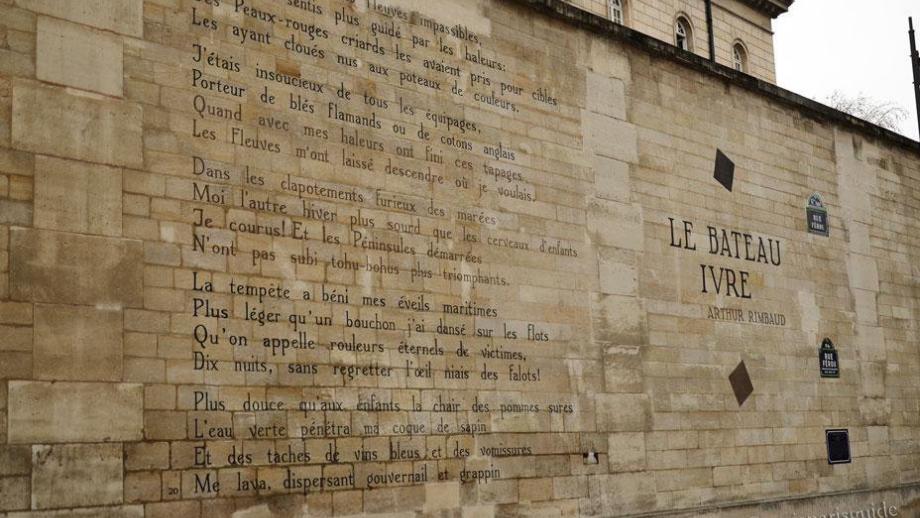 Fleuves impassibles,
sentis plus guidé par les haleurs:
Les Peaux-rouges criards les avaient pris pour cibles
Les ayant cloués nus aux poteaux de couleurs.
J'étais insoucieux de tous les équipages,
Porteur de blés flamands ou de cotons anglais
Quand avec mes haleurs ont fini ces tapages
Les Fleuves m'ont laissé descendre où je voulais.
Dans les clapotements furieux des marées
Moi l'autre hiver plus sourd que les cerveaux d'enfants
Je courus! Et les Péninsules démarrées
N'ont pas subi tohu-bohus plus triomphants.
La tempête a béni mes éveils maritimes
Plus léger qu'un bouchon j'ai dansé sur les flots
Qu'on appelle rouleurs éternels de victimes,
Dix nuits, sans regretter l'œil niais des falots!
Plus douce qu'aux enfants la chair des pommes sures
L'eau verte pénétra ma coque de sapin
Et des taches de vins bleus et des vomissures
20 Me lava, dispersant gouvernail et grappin
LE BATEAU
IVRE
ARTHUR RIMBAUD
RUE
FÉROU
RUE
FÉROU